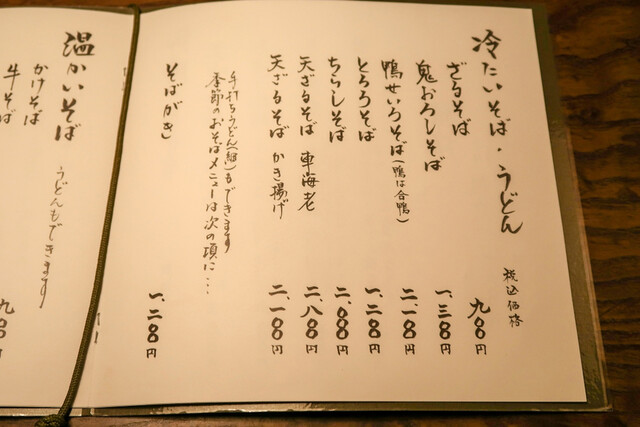 冷たいそば・うどん
税込価格
ざるそば 九〇〇円
鬼おろしそば 一、三〇〇円
鴨せいろそば(鴨は合鴨) 二、一〇〇円
とろろそば 一、二〇〇円
ちらしそば 二、〇〇〇円
天ざるそば 車海老 二、八〇〇円
天ざるそば かき揚げ 二、一〇〇円
手打ちうどん(細)もできます
季節のおそばメニューは次の頃に…
そばがき 一、二〇〇円
温かいそば
うどんもできます
かけそば 九〇〇円
牛そば